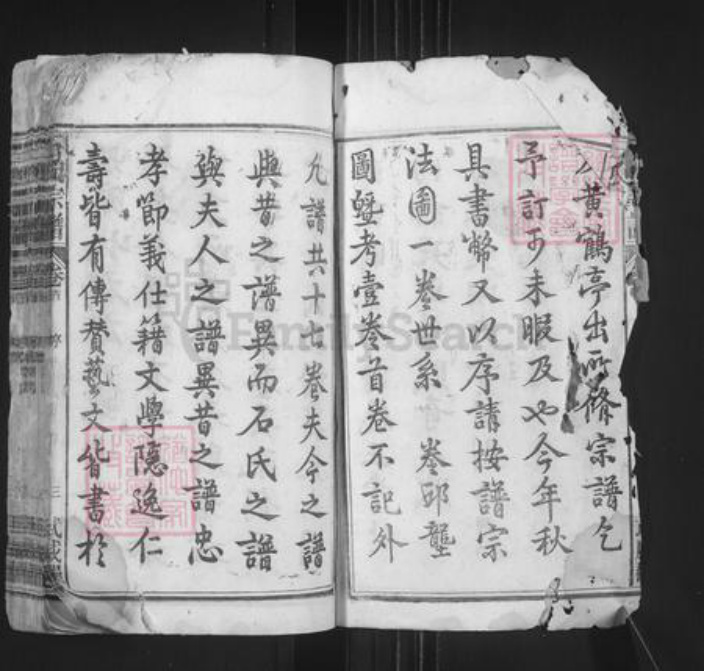 黃鶴亭出所脩宗譜乞
予訂予未暇及也今年秋
具書幣又以序請按譜宗
法圖一卷世系 卷邱壟
圖墍考壹卷首卷不記外
凡譜共十七卷夫今之譜
與昔之譜異而石氏之譜
與夫人之譜異昔之譜忠
孝節義仕籍文學隱逸仁
壽皆有傳贊藝文皆書於
宗譜 卷 序 三
FamilySearch